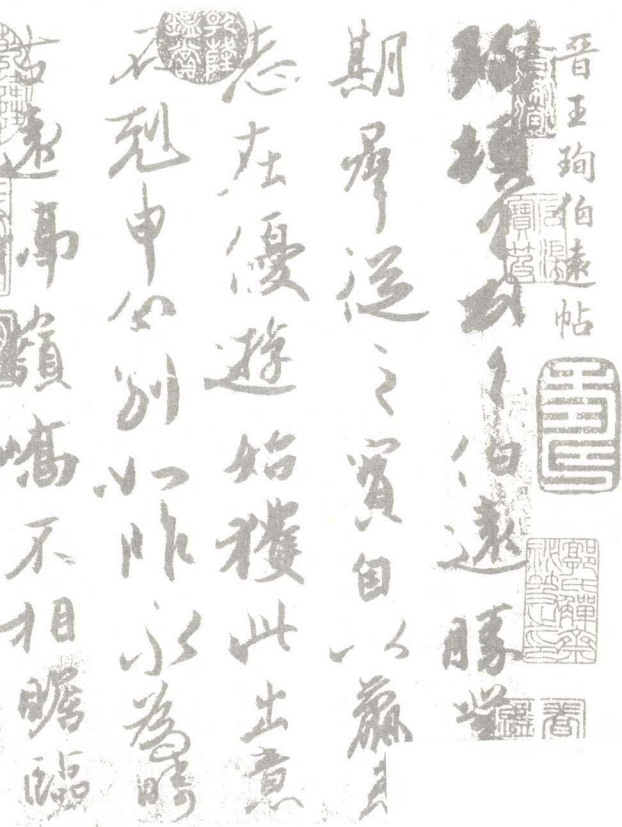 晉王珣伯遠帖
珣頓首頓首伯遠勝業
期羣從之寶自以羸
志在優遊始獲此出意
不剋申分別如昨永為疇
古遠隔嶺嶠不相瞻臨